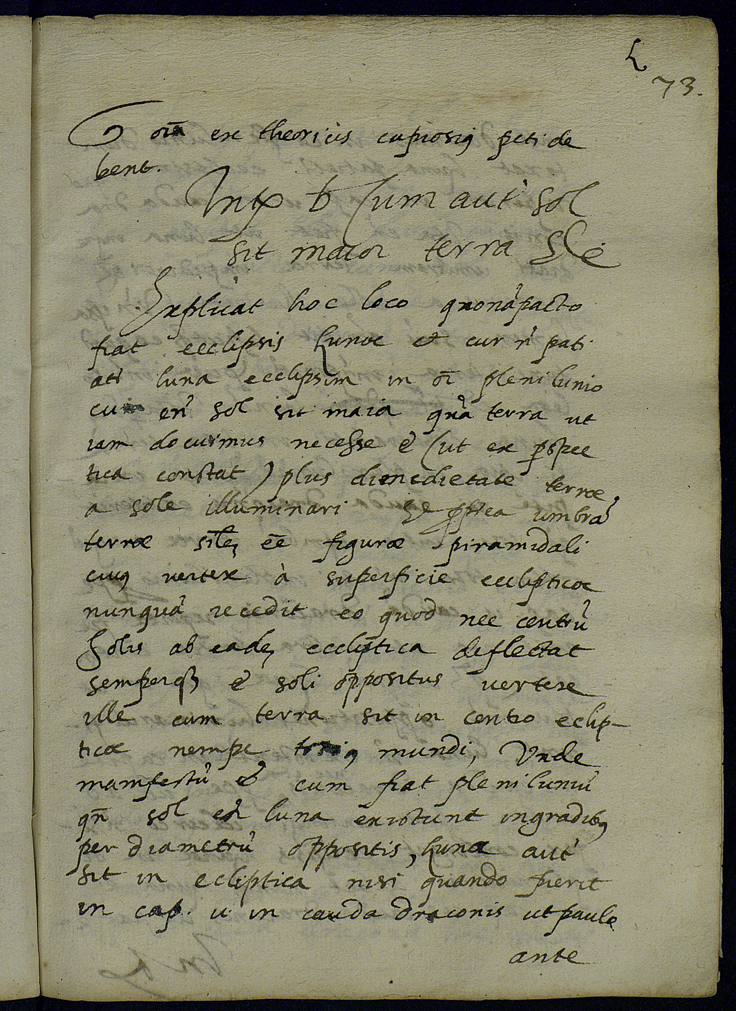 73.
oīa ex theoricis cupiosiq peti de
bent.
Cum aut sol
sit maior terra &c
Explicat hoc loco quonā pacto
fiat ecclipsis Lunæ et cur n̄ pati
atr̄ luna ecclipsim in oī plenilunio
cum en̄ sol sit maior quā terra ut
iam docuimus necesse ē (ut ex perspec
tica constat) plus dimedietate terræ
a sole illuminari umbrā
terræ siłem, eē figuræ piramidali
cuiq vertex à superficie ecclipticæ
nunquā recedit eo quod nec centrū
Solis ab eadē ecclíptica deflectat
semperq ē soli oppositus vertexe
ille cum terra sit in centro eclip-
ticæ nempe mundi, Unde
manifestū ē cum fiat pleniluniū
qn̄ sol et luna existunt in gradibq
per diametrū oppositis, Lunæ aut
sit in ecliptica nisi quando fuerit
in cap. u in cauda draconis ut paulo
ante